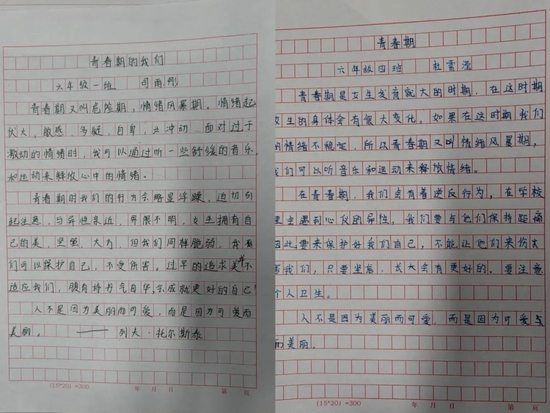 青春期的我们
六年级一班 司雨彤
青春期又叫危险期，情绪风暴期。情绪起
伏大，敏感，多疑，自卑，且冲动。面对过于
激动的情绪时，我可以通过听一些舒缓的音乐
和运动来释放心中的情绪。
青春期时我们的行为亦略显浮躁，迫切引
起注意，与异性亲近，界限不明，女生拥有自
己的美，坚强，大方，但我们同样脆弱，
们可以保护自己，不受伤害。过早的追求美不
适应我们，腹有诗书气自华，成就更好的自己！
人不是因为美丽而可爱，而是因为可爱而
美丽。—— 列夫·托尔斯泰
(15*20)=300 年 月 日 第 页
青春期
六年级四班
青春期是女生发育最大的时期，在这时期
女生的身体会有很大变化。如果在这时期我们
的情绪不稳定，所以青春期又叫情绪风暴期，
我们可以听音乐和运动来释放情绪。
在青春期，我们会有着逆反行为，在学校
里会遇到心仪的异性，我们要与他们保持距离
因此要来保护好我们自己，不能让他们来伤
害我们，只要坐好，长大会有更好的，要注意
个人卫生。
人不是因为美丽而可爱，而是因为可爱与
而美丽。
(15*20)=300 年 月 日 第 页